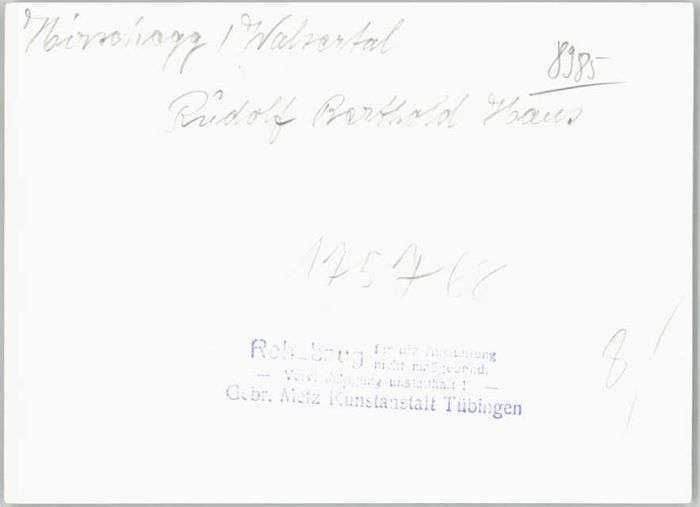 Hirschegg / Walsertal
8985
Rudolf Berthold Haus
175768
Rohabzug für die Ausführung
nicht maßgebend.
— Vervielfältigung unstatthaft! —
Gebr. Metz Kunstanstalt Tübingen
8,